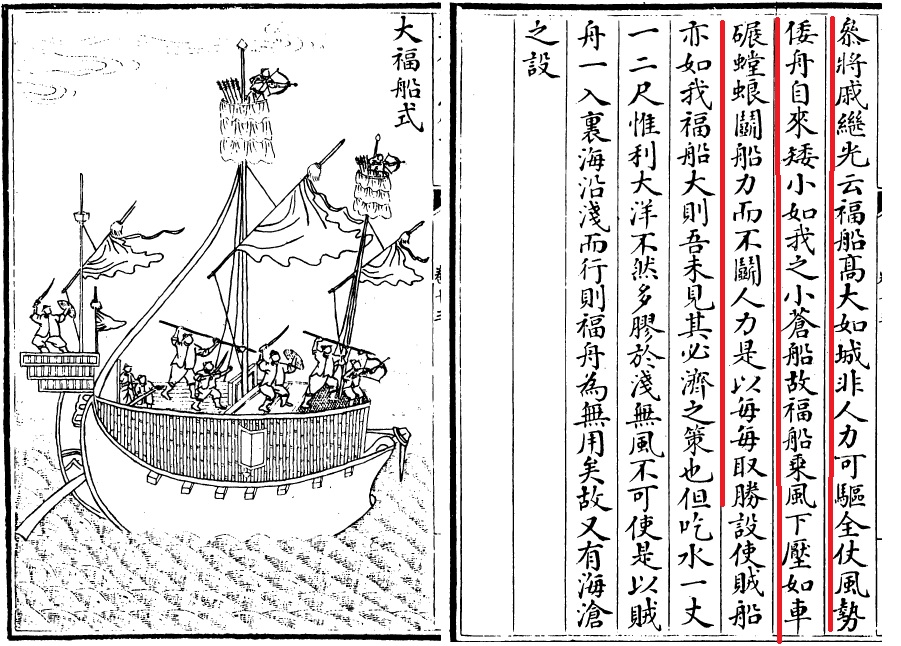 叅將戚繼光云福船髙大如城非人力可驅全仗風勢
倭舟自來矮小如我之小蒼船故福船乘風下壓如車
碾螳蜋鬭船力而不鬭人力是以每每取勝設使賊船
亦如我福船大則吾未見其必濟之策也但吃水一丈
一二尺惟利大洋不然多膠於淺無風不可使是以賊
舟一入裏海沿淺而行則福舟為無用矣故又有海滄
之設
大福船式